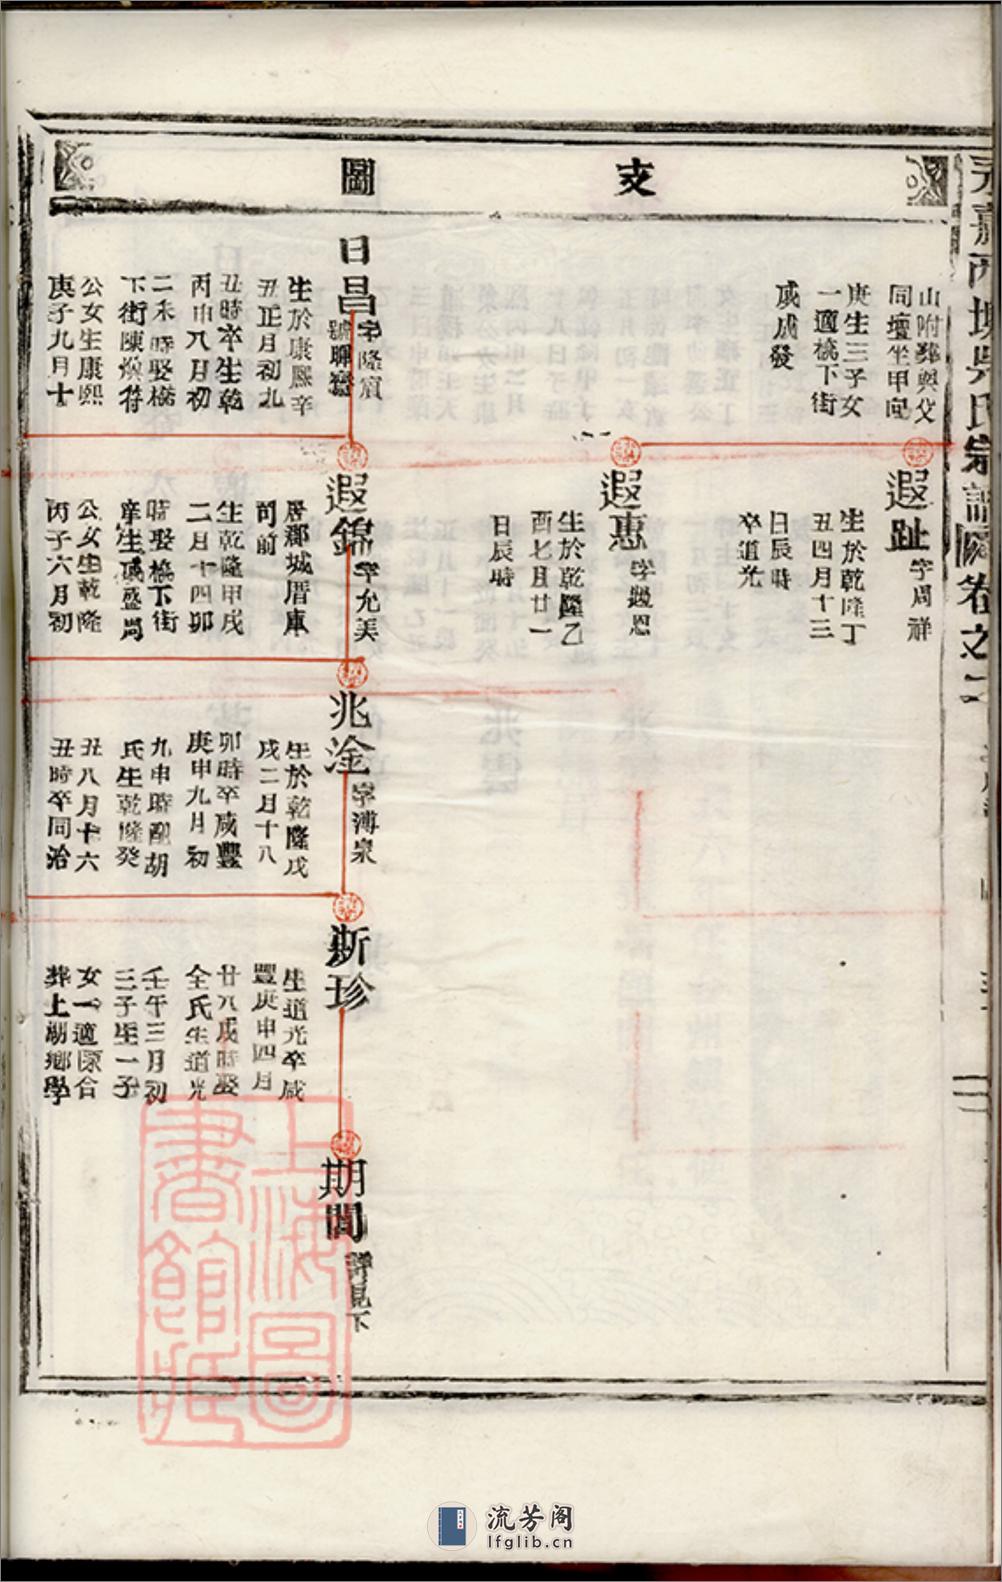 支圖
山附葬與父
同壇坐甲向
庚生三子女
一適梳下街
戚成發
遐趾
字周祥
生於乾隆丁
丑四月十三
日辰時
卒道光
遐惠
字趨恩
生於乾隆乙
酉七月廿一
日辰時
日昌
字隆賓
號聯嶽
生於康熙辛
丑正月初九
丑時卒生乾
丙申八月初
二未時娶梳
下街陳煥符
公女生康熙
庚子九月十
遐錦
字允美
居郡城厝庫
司前
生乾隆甲戌
二月十四卯
時娶梳下街
庠生戚盛周
公女生乾隆
丙子六月初
兆淦
字溥泉
生於乾隆戊
戌二月十八
卯時卒咸豐
庚申九月初
九申時配胡
氏生乾隆癸
丑八月十六
丑時卒同治
斯珍
生道光卒咸
豐庚申四月
廿六戌時娶
全氏生道光
壬午三月初
三子生一子
女一適陳合
葬上湖鄉學
期間
詳見下
上海圖書館藏
流芳阁
lfglib.cn